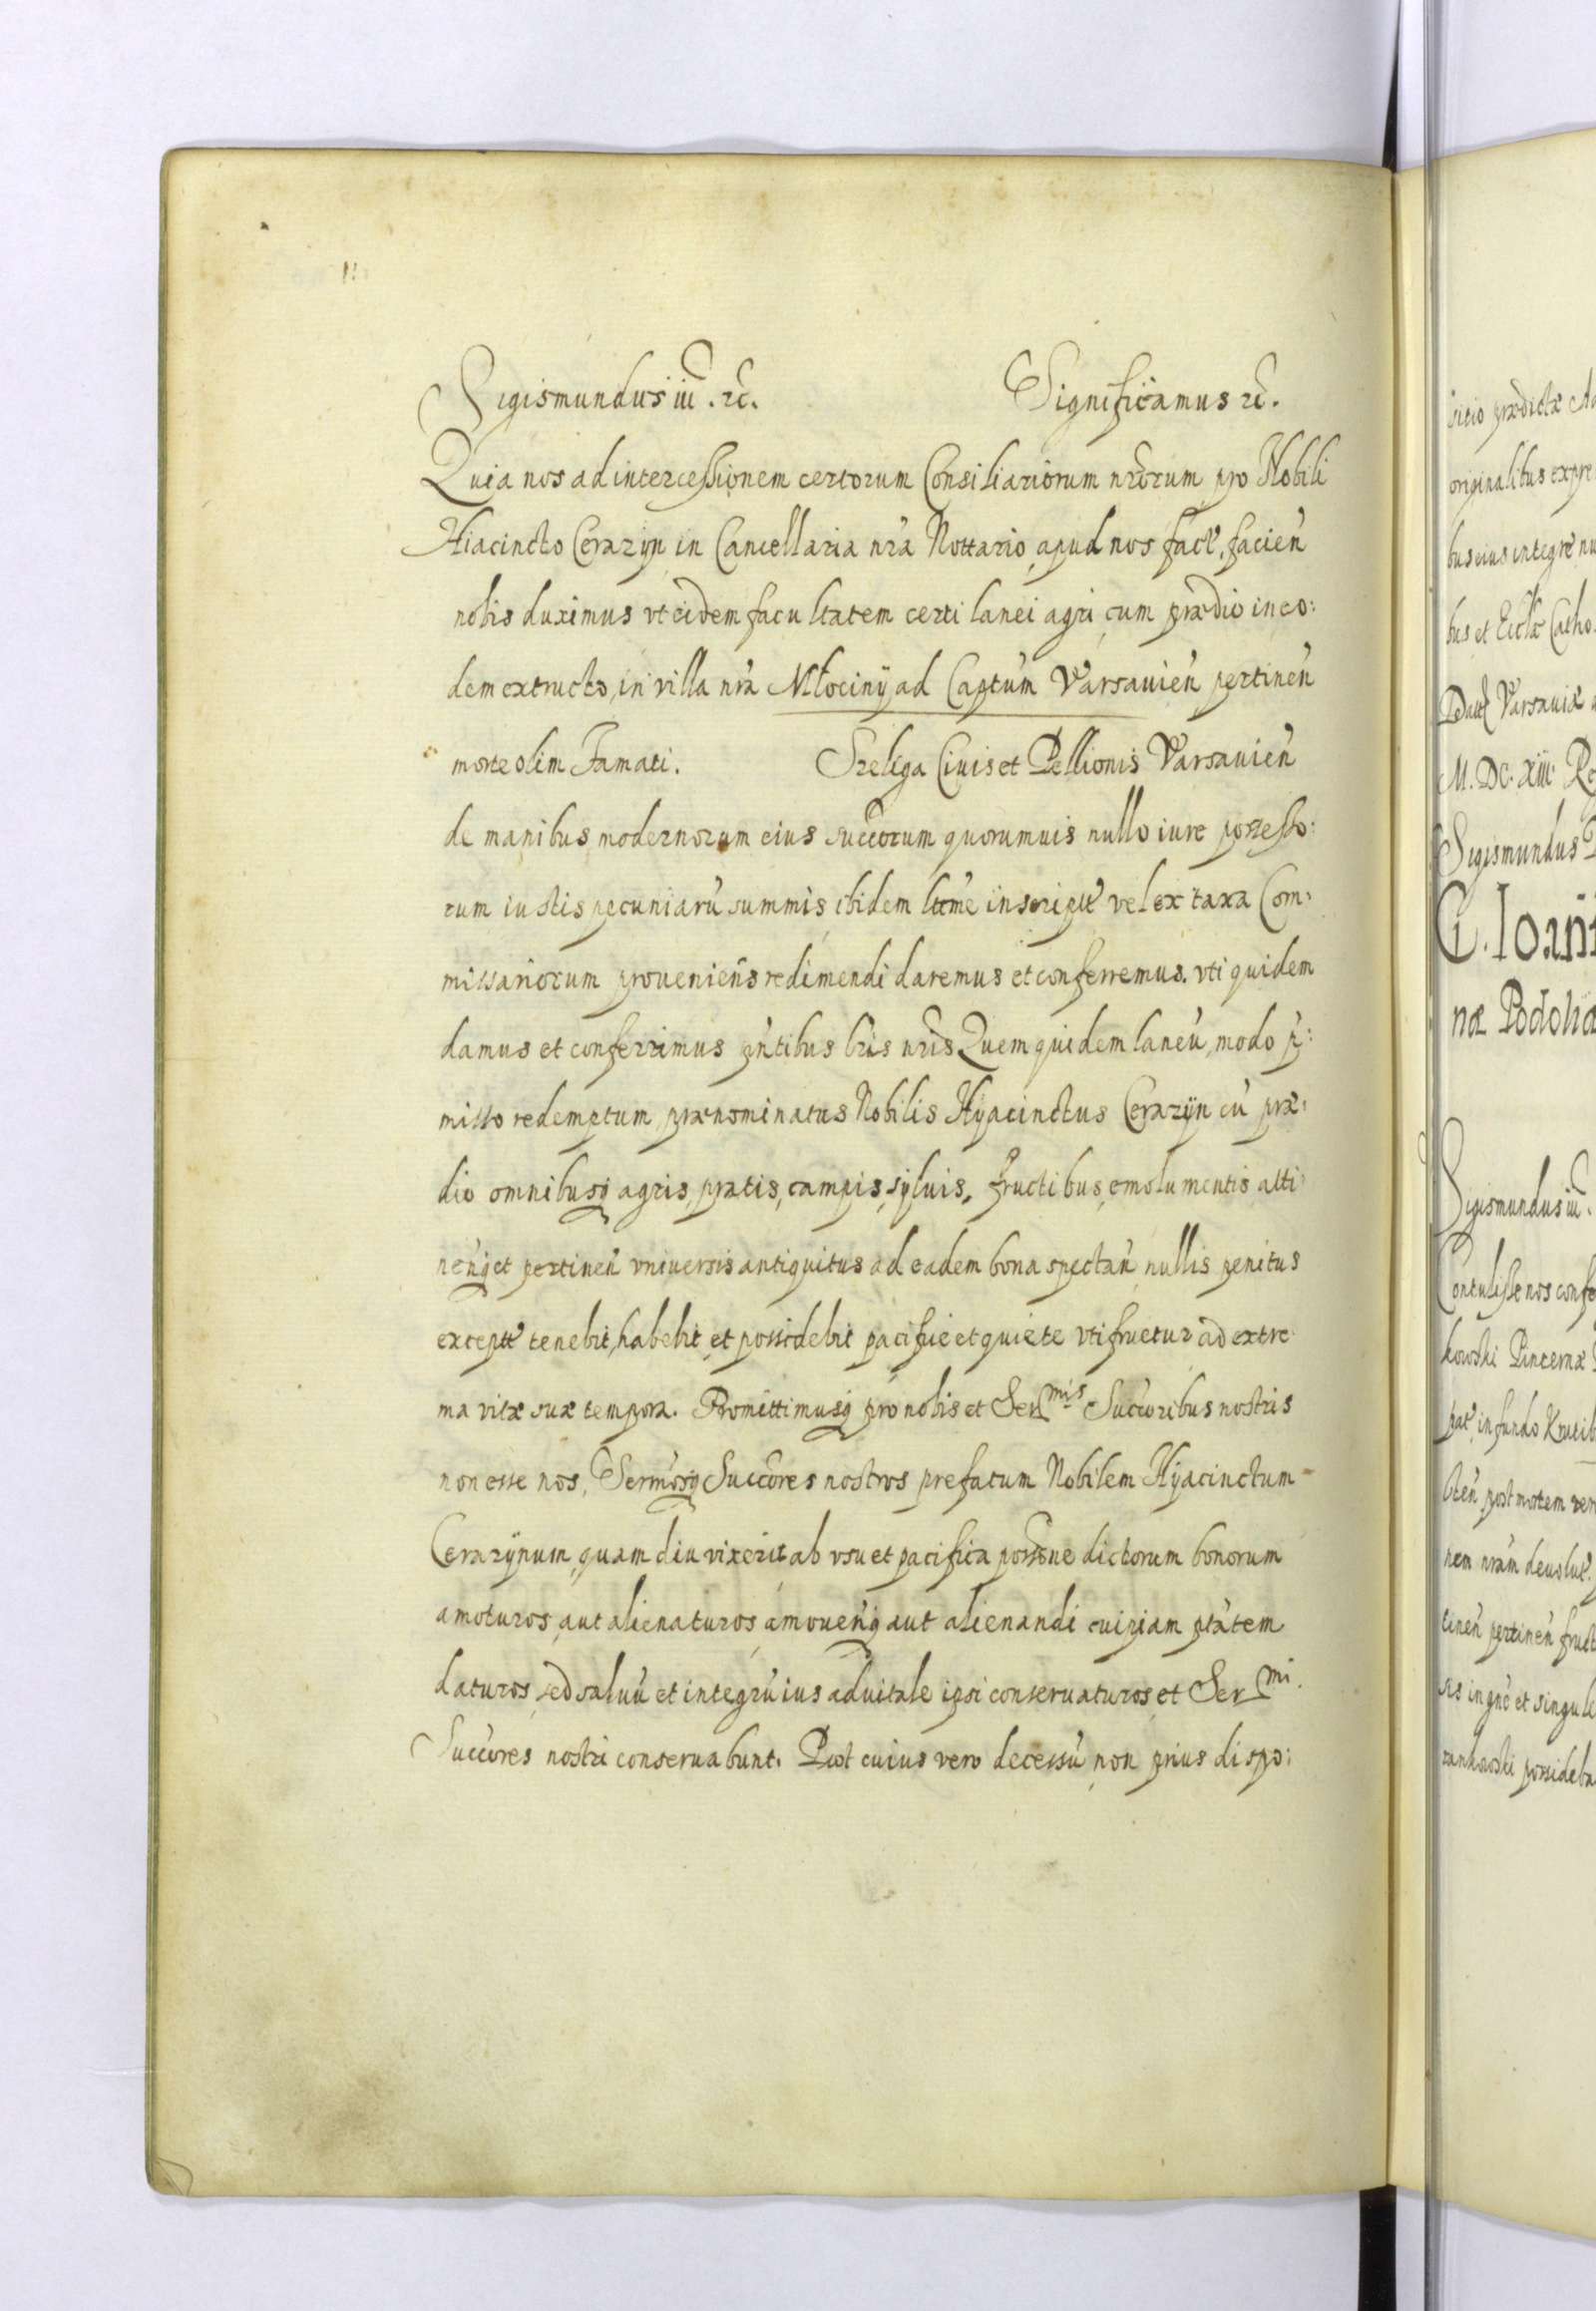 Sigismundus iii. rc. Significamus rc.
Quia nos ad intercessionem certorum Consiliariorum nrorum pro Nobili
Hiacincto Cerazyn in Cancellaria nra Nottario, apud nos fact, facien
nobis duximus vt eidem facultatem certi lanei agri cum prædio in eo:
dem extructo, in villa nra Młociny ad Captum Varsauien pertinen
morte olim Famati. Szeliga Ciuis et Pellionis Varsauien
de manibus modernorum eius succorum quorumuis nullo iure possesso:
rum iustis pecuniaru summis ibidem ltme inscript vel ex taxa Com:
missariorum proueniens redimendi daremus et conferremus. vti quidem
damus et conferrimus pntibus lris nris Quem quidem laneu, modo p:
misso redemptum, prænominatus Nobilis Hyacinctus Cerazyn cu præ:
dio omnibusq agris, pratis, campis, syluis, fructibus, emolumentis atti
nenq et pertinen vniuersis antiquitus ad eadem bona spectan nullis penitus
exceptt tenebit, habebit et possidebit pacifice et quiete vti fruetur ad extre
ma vitæ suæ tempora. Promittimusq pro nobis et Sermis Succoribus nostris
non esse nos, Sermosq Succores nostros prefatum Nobilem Hyacinctum
Cerazynum, quam diu vixerit ab vsu et pacifica possone dictorum bonorum
amoturos, aut alienaturos, amouenq aut alienandi cuipiam ptatem
daturos, sed saluu et integru ius aduitale ipsi conseruaturos, et Sermi
Succores nostri conseruabunt. Post cuius vero decessu non prius dispo:
sitio prædictæ
originalibus
bus eius integre
bus et Eccla Catho
Datt Varsauiæ
M. DC. XIII.
Sigismundus
C. Ioan
næ Podolia
Sigismundus iii.
Contulisse nos
kowski Pincernæ
in fundo
post mortem
nem nram deuolut
tinen pertinen
et singul
possideb